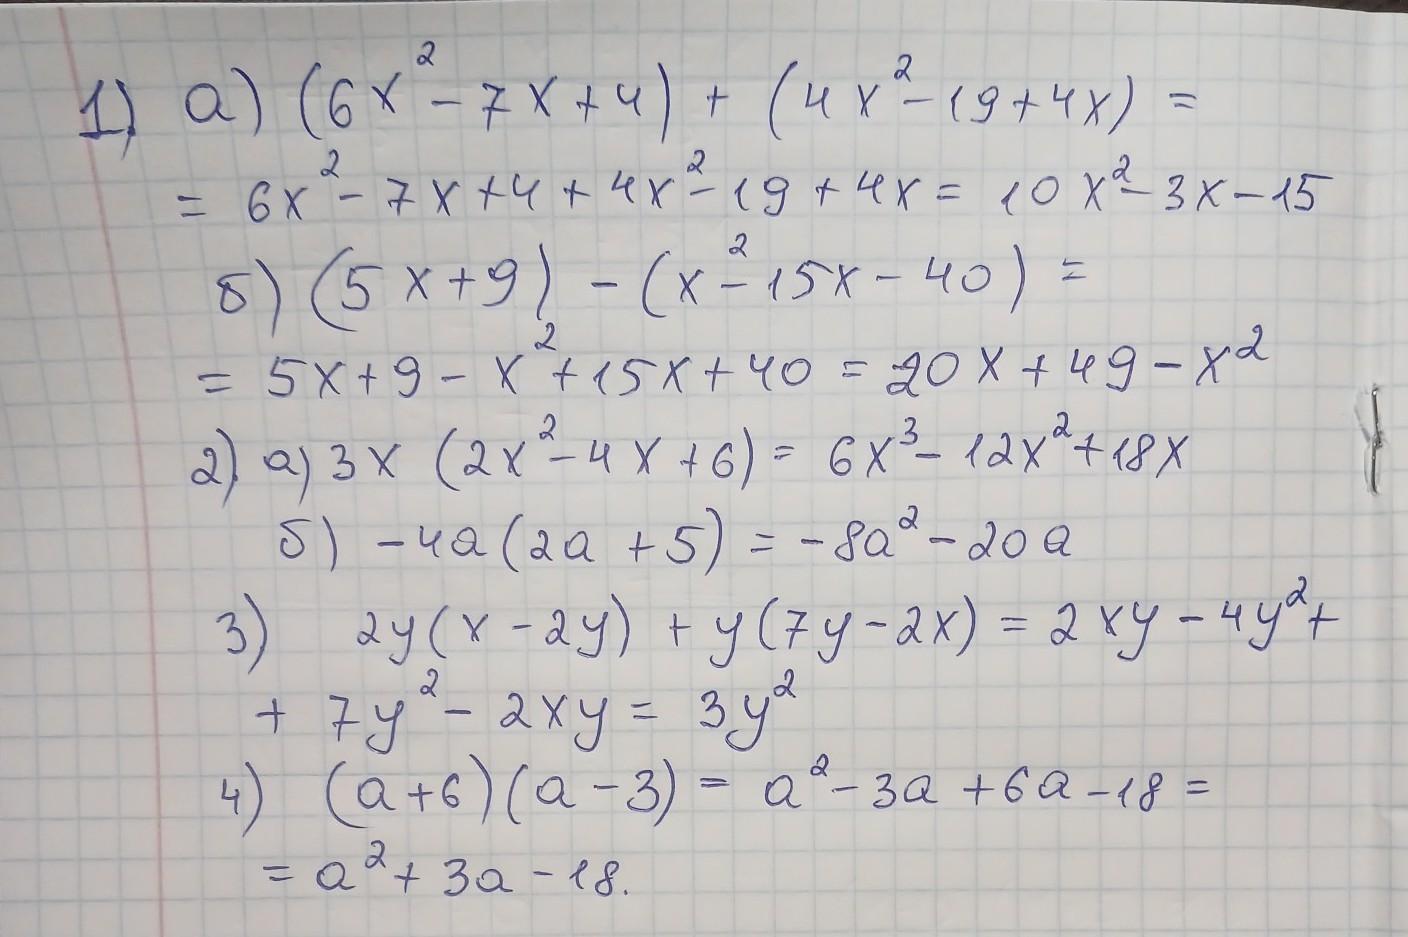 1) а) (6x² - 7x + 4) + (4x² - 19 + 4x) =
= 6x² - 7x + 4 + 4x² - 19 + 4x = 10x² - 3x - 15
б) (5x + 9) - (x² - 15x - 40) =
= 5x + 9 - x² + 15x + 40 = 20x + 49 - x²
2) а) 3x (2x² - 4x + 6) = 6x³ - 12x² + 18x
б) -4a (2a + 5) = -8a² - 20a
3) 2y (x - 2y) + y (7y - 2x) = 2xy - 4y² +
+ 7y² - 2xy = 3y²
4) (a + 6) (a - 3) = a² - 3a + 6a - 18 =
= a² + 3a - 18.